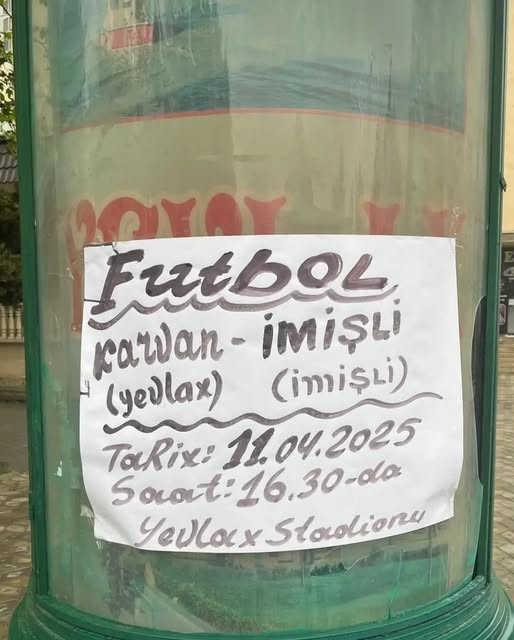 Futbol
Karvan - İMİŞLİ
(yevlax) (imişli)
Tarix: 11.04.2025
Saat: 16.30-da
Yevlax Stadionu